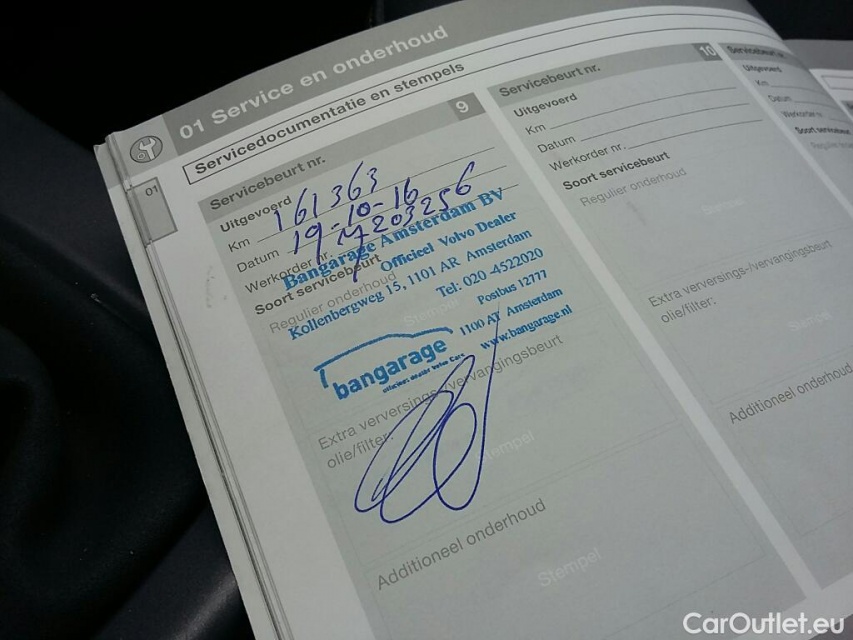 01 Service en onderhoud
Servicedocumentatie en stempels
01
Servicebeurt nr. 9
Uitgevoerd
Km 161363
Datum 19-10-16
Werkorder nr.
Soort servicebeurt
Regulier onderhoud
Bangarage Amsterdam BV
Officieel Volvo Dealer
Kollenbergweg 15, 1101 AR Amsterdam
Tel: 020-4522020
Postbus 12777
1100 AT Amsterdam
www.bangarage.nl
bangarage
Extra verversings-/vervangingsbeurt
olie/filter:
Stempel
Additioneel onderhoud
Stempel
Servicebeurt nr. 10
Uitgevoerd
Km
Datum
Werkorder nr.
Soort servicebeurt
Regulier onderhoud
Stempel
Extra verversings-/vervangingsbeurt
olie/filter:
Stempel
Additioneel onderhoud
Servicebeurt
Uitgevoerd
Km
Datum
Werkorder
Soort servicebeurt
CarOutlet.eu